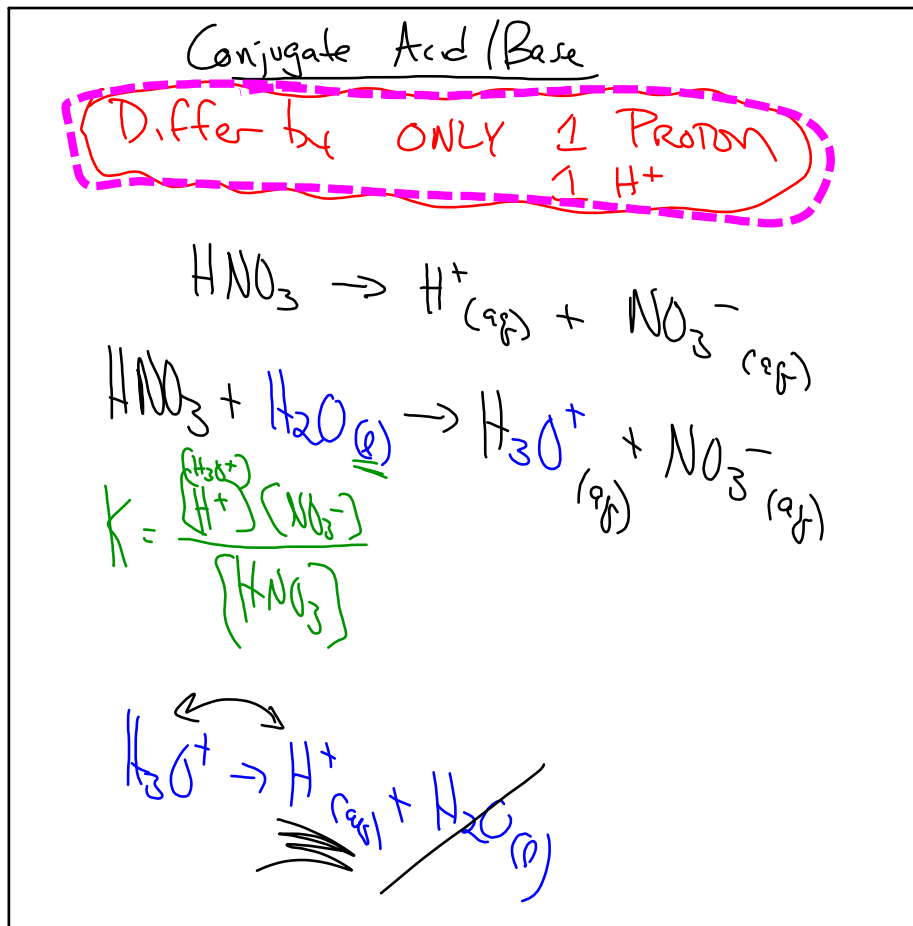 Conjugate Acid/Base
Differ by ONLY 1 PROTON
1 H⁺
HNO₃ → H⁺(aq) + NO₃⁻(aq)
HNO₃ + H₂O(l) → H₃O⁺(aq) + NO₃⁻(aq)
[H₃O⁺]
K = [H⁺][NO₃⁻]
[HNO₃]
H₃O⁺ → H⁺(aq) + H₂O(l)